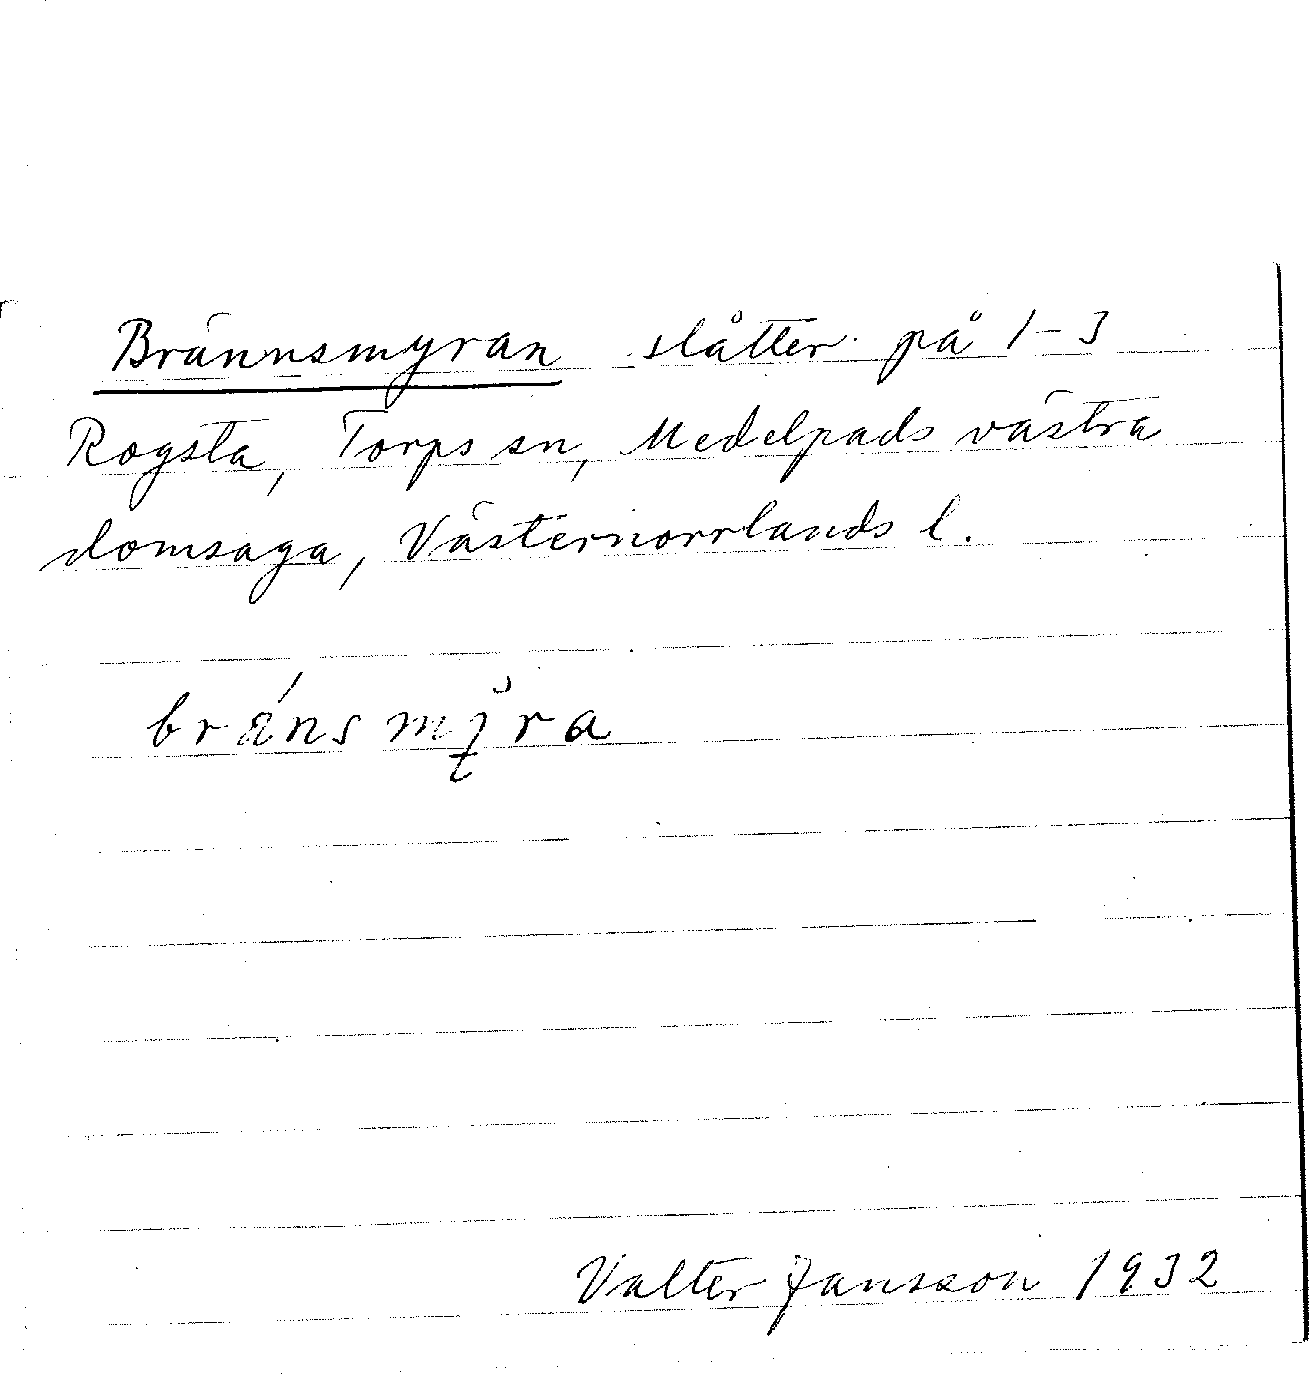 Brännsmyran slåtter på 1-3
Rogsta, Torps sn, Medelpads västra
domsaga, Västernorrlands l.
Valter Jansson 1932